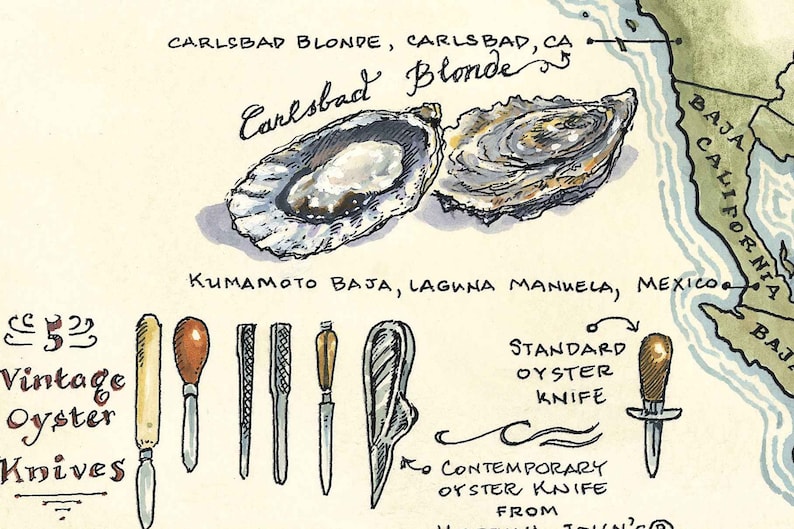 CARLSBAD BLONDE, CARLSBAD, CA
Carlsbad Blonde
BAJA
CALIFORNIA
KUMAMOTO BAJA, LAGUNA MANUELA, MEXICO
BAJA
5
Vintage
Oyster
Knives
STANDARD
OYSTER
KNIFE
CONTEMPORARY
OYSTER KNIFE
FROM
JOHN'S®